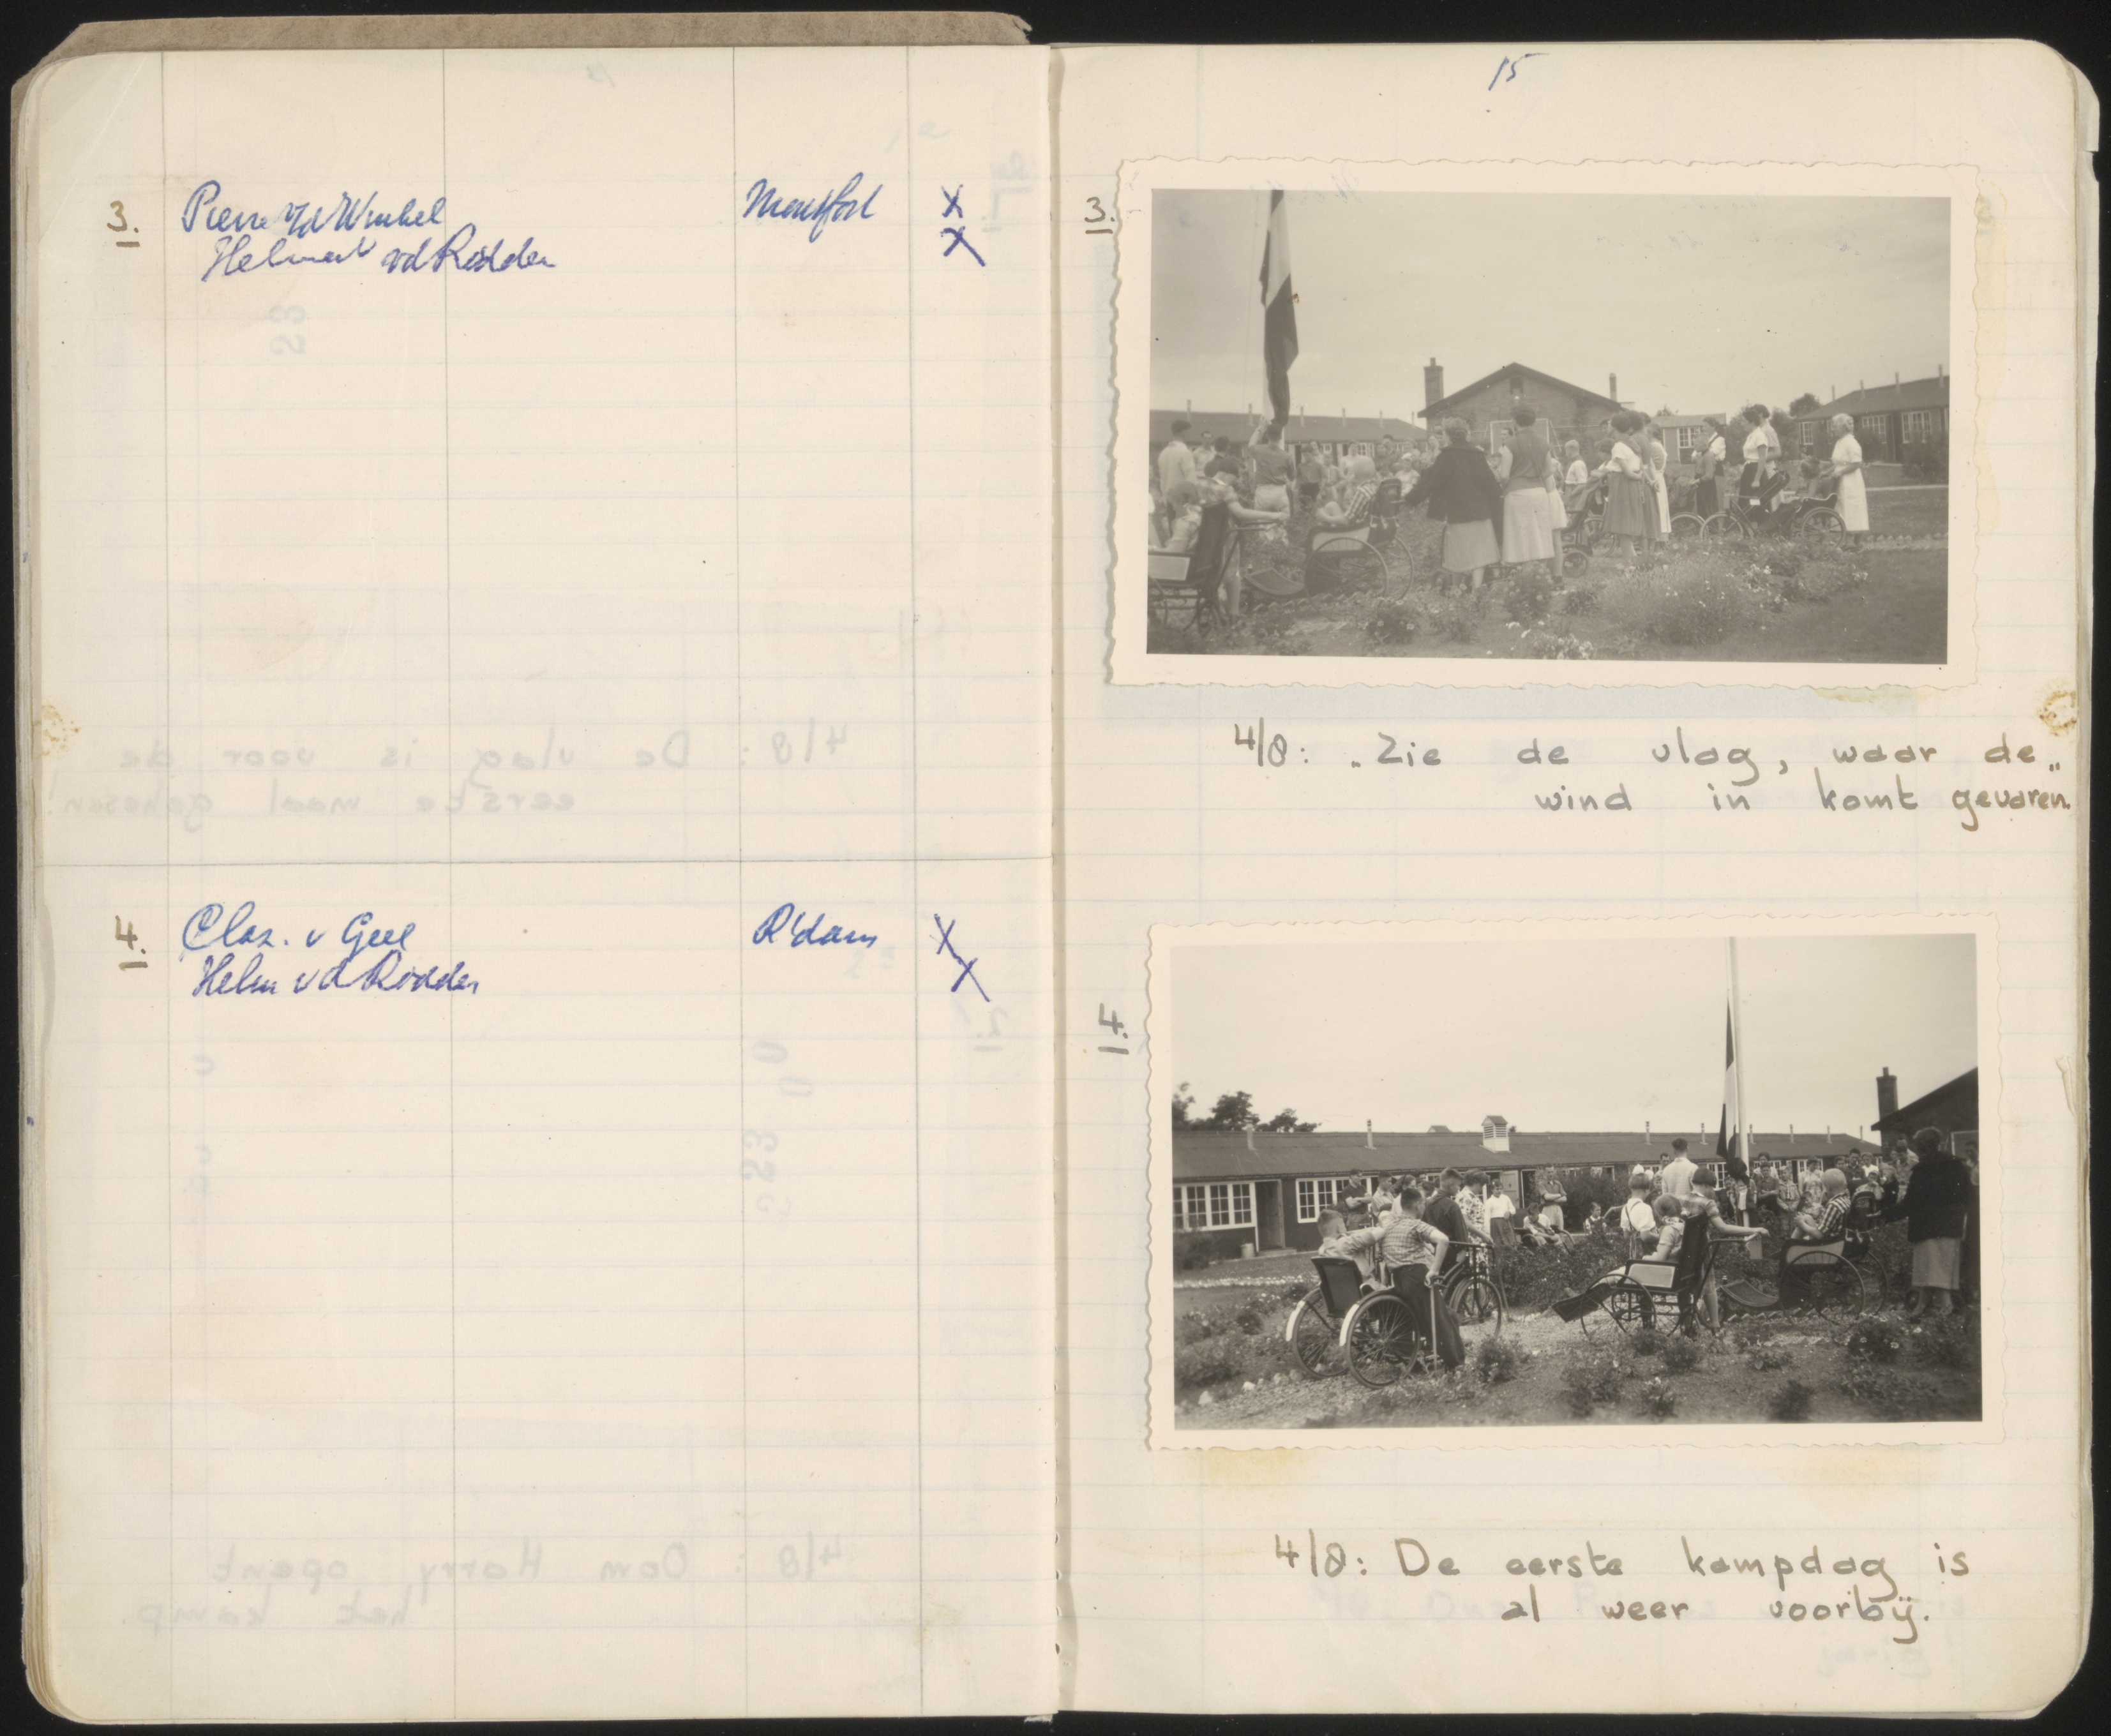 3. Pierre v/d Winkel Montfort X
Helmert vd Rodden X
4. Claz. v Geel R'dam X
Helm vd Rodden X
15
3.
4/8: „Zie de vlag, waar de„
wind in komt gevaren.
4.
4/8: De eerste kampdag is
al weer voorbij.